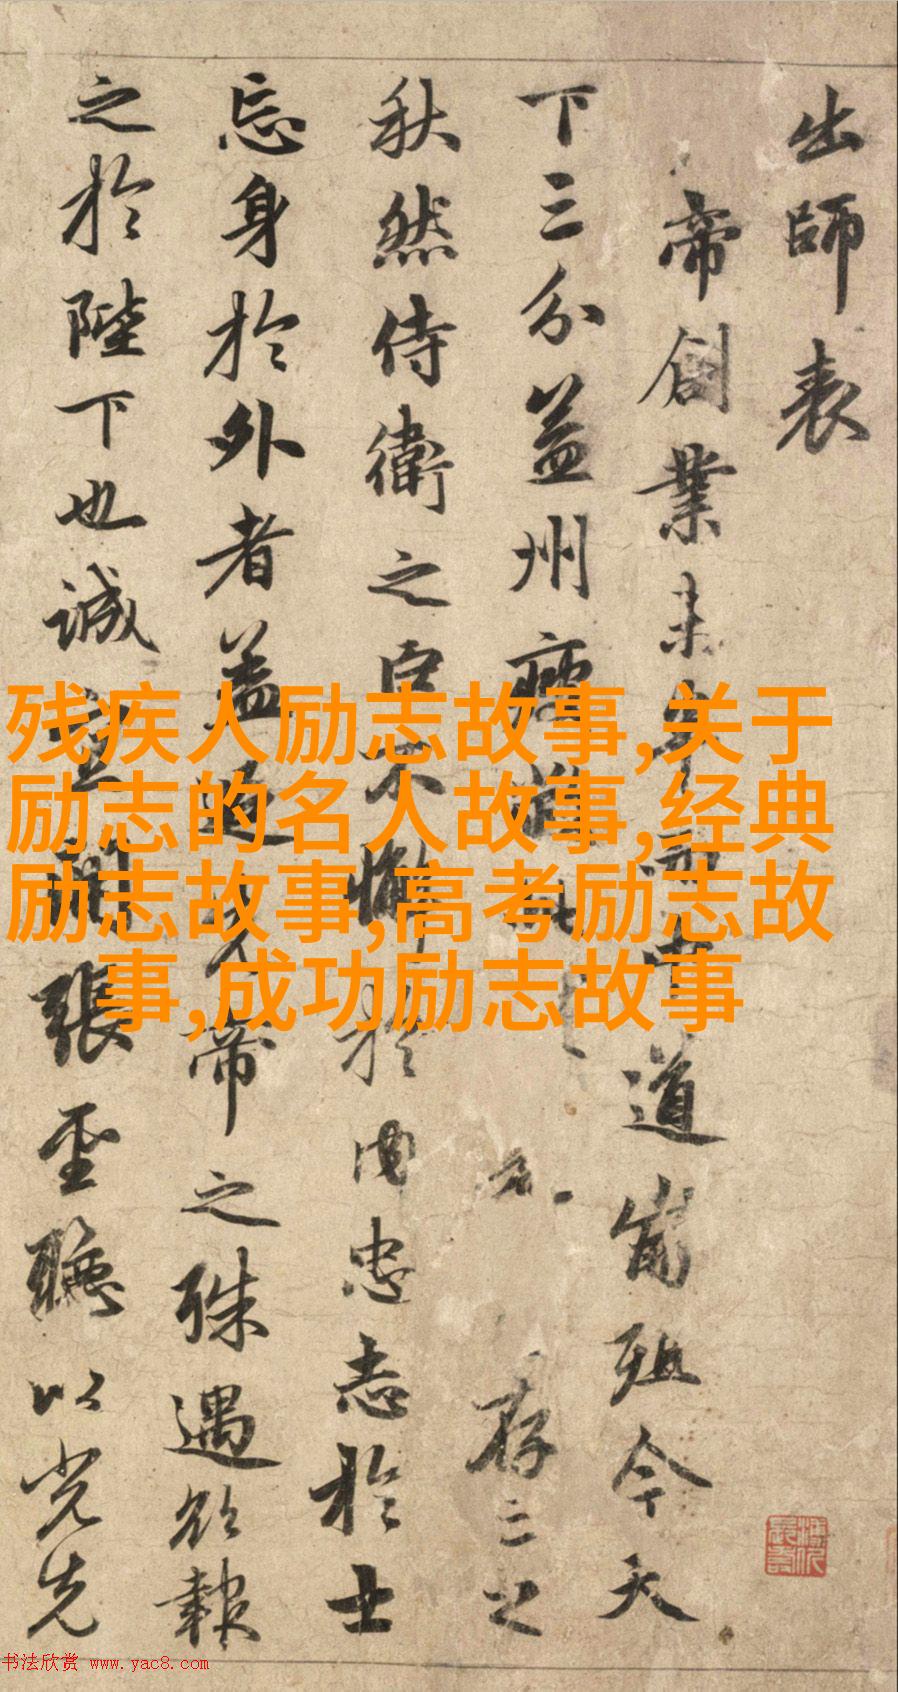 出師表
帝創業未半而中道崩殂今天
下三分益州疲弊此存亡之
秋然侍衛之臣不懈於内忠志於士
忘身於外者蓋追先帝之殊遇欲報
之於陛下也誠宜開張聖聽以光先
残疾人励志故事,关于
励志的名人故事,经典
励志故事,高考励志故
事,成功励志故事
书法欣赏 www.yac8.com